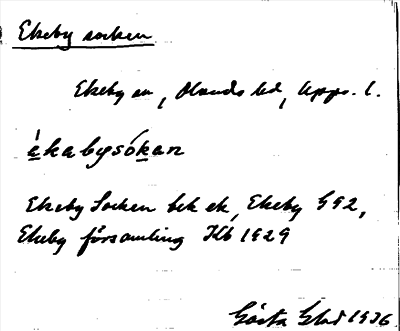 Ekeby socken
Ekeby sn, Olands hd, Upps. l.
èkabysókan
Ekeby Socken bek ek, Ekeby G92,
Ekeby församling Kb 1929
Gösta Glad 1936